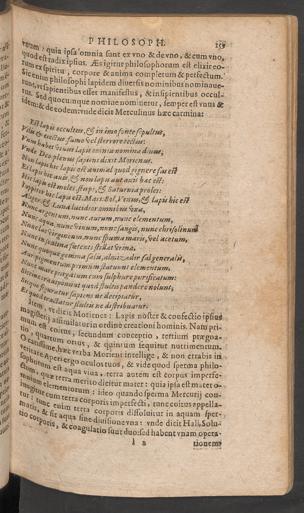 PHILOSOPH. 259
verum: quia ipsa omnia sunt ex vno & de vno, & cum vno,
quod est radix ipsius. Æs igitur philosophorum est elixir
rum ex spiritu, corpore & anima completum & perfectum.
Sic enim philosophi lapidem diuersis nominibus nominaue-
runt, vt sapientibus esset manifestus, & insipientibus occul-
tus. Sed quocunque nomine nominetur, semper est vnus &
idem: & de eodem: vnde dicit Merculinus hæc carmina:
Est lapis occultus, & in imo fonte sepultus,
Vilis & eiectus fumo vel stercore tectus:
Vnus habet viuum lapis omnia nomina diuus,
Vnde Deo plenus sapiens dixit Morienus.
Non lapis hic lapis est animal quod gignere fas est
Et lapis hic auis, & non lapis aut auis hæc est:
Hic lapis est moles, stirps, & Saturnia proles:
Iuppiter hic lapis est, Mars, Sol, Venus, & lapis hic est
Aliger, & Luna lucidior omnibus vna,
Nunc argentum, nunc aurum, nunc elementum,
Nunc aqua, nunc vinum, nunc sanguis, nunc chrisolinum
Nunc lac virgineum, nunc spuma maris, vel acetum,
Nunc in sentina fœtenti stillat vrina,
Nunc quoque gemma salis, almizadir sal generalis,
Auripigmentum primum statuunt elementum,
Nunc mare purgatum cum sulphure purificatum:
Sicque figuratur sapiens ne decipiatur,
Et quod tractatur stultis ne distribuatur.
Item, vt dicit Morienus: Lapis noster & confectio ipsius
magisterij assimilatur in ordine creationi hominis. Nam pri-
mum est coitus, secundum conceptio, tertium prægna-
tio, quartum ortus, & quintum sequitur nutrimentum.
O carissime, hæc verba Morieni intellige, & non errabis in
veritate. Aperi ergo oculos tuos, & vide quod sperma philo-
sophorum est aqua viua, terra autem est corpus imperfe-
ctum, quæ terra merito dicitur mater: quia ipsa est mater o-
mnium elementorum: ideo quando sperma Mercurij con-
iungitur cum terra corporis imperfecti, tunc coitus appella-
tur: tunc enim terra corporis dissoluitur in aquam sper-
matis, & sit aqua sine diuisione vna: vnde dicit Hali, Solu-
tio corporis, & coagulatio sunt duo: sed habent vnam opera-
tionem